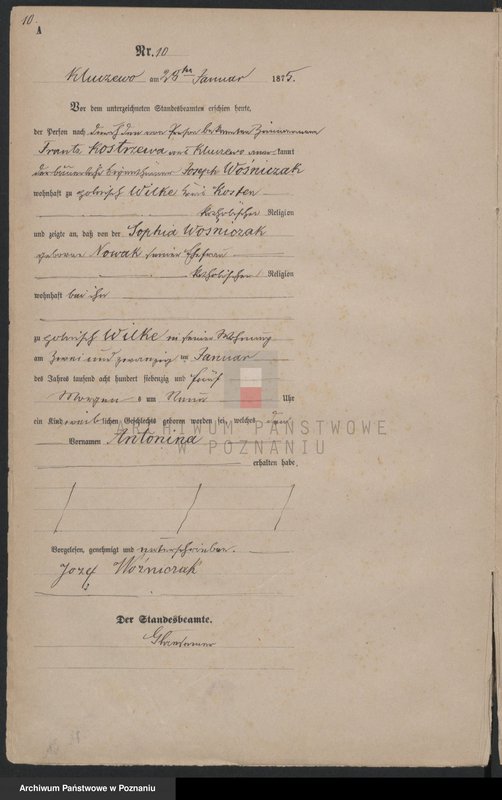 10.
A
Nr. 10
Kluczewo am 25ten Januar 1875.
Vor dem unterzeichneten Standesbeamten erschien heute,
der Person nach durch den von Person bekannten
Frantz Kostrzewa aus Kluczewo anerkannt
Joseph Wośniczak
wohnhaft zu polnisch Wilke Kreis Kosten
katholischer Religion
und zeigte an, daß von der Sophia Wosniczak
geborne Nowak seiner Ehefrau
katholischer Religion
wohnhaft bei ihm
zu polnisch Wilke in seiner Wohnung
am zwei und zwanzig ten Januar
des Jahres tausend acht hundert siebenzig und fünf
Morgens um Neun Uhr
ein Kind weiblichen Geschlechts geboren worden sei, welches den
Vornamen Antonina
erhalten habe.
Vorgelesen, genehmigt und unterschrieben.
Jozef Woźniczak
Der Standesbeamte.
ARCHIWUM PAŃSTWOWE
W POZNANIU
Archiwum Państwowe w Poznaniu